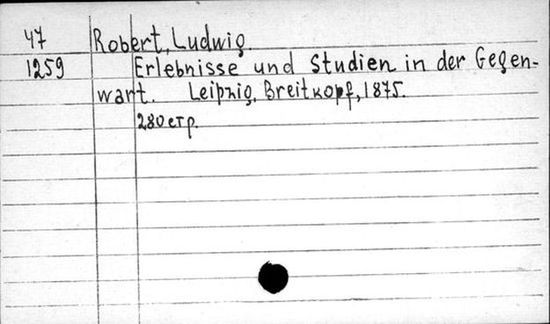 47 Robert, Ludwig.
1259 Erlebnisse und Studien in der Gegen-
wart. Leipzig, Breitkopf, 1875.
280 стр.